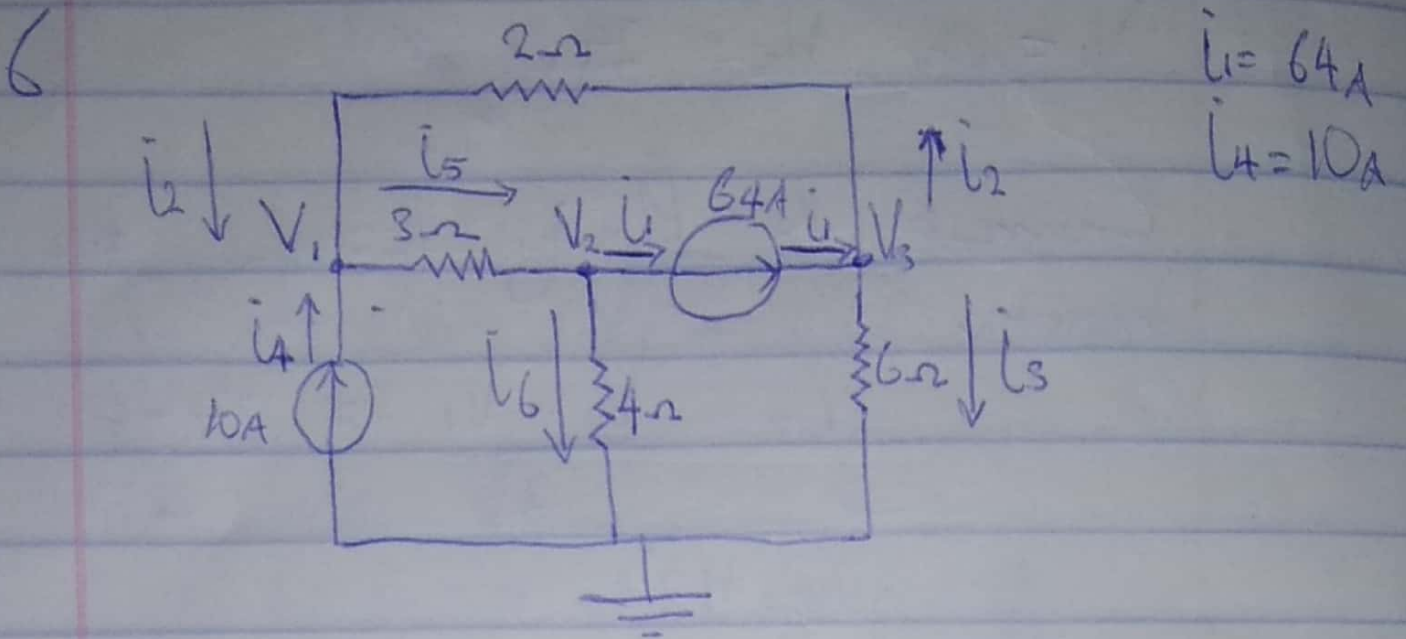 6
2Ω
i1 = 64A
i4 = 10A
i2
i5
i2
V1
3Ω
V2
i1
64A
i1
V3
i4
10A
i6
4Ω
6Ω
i3